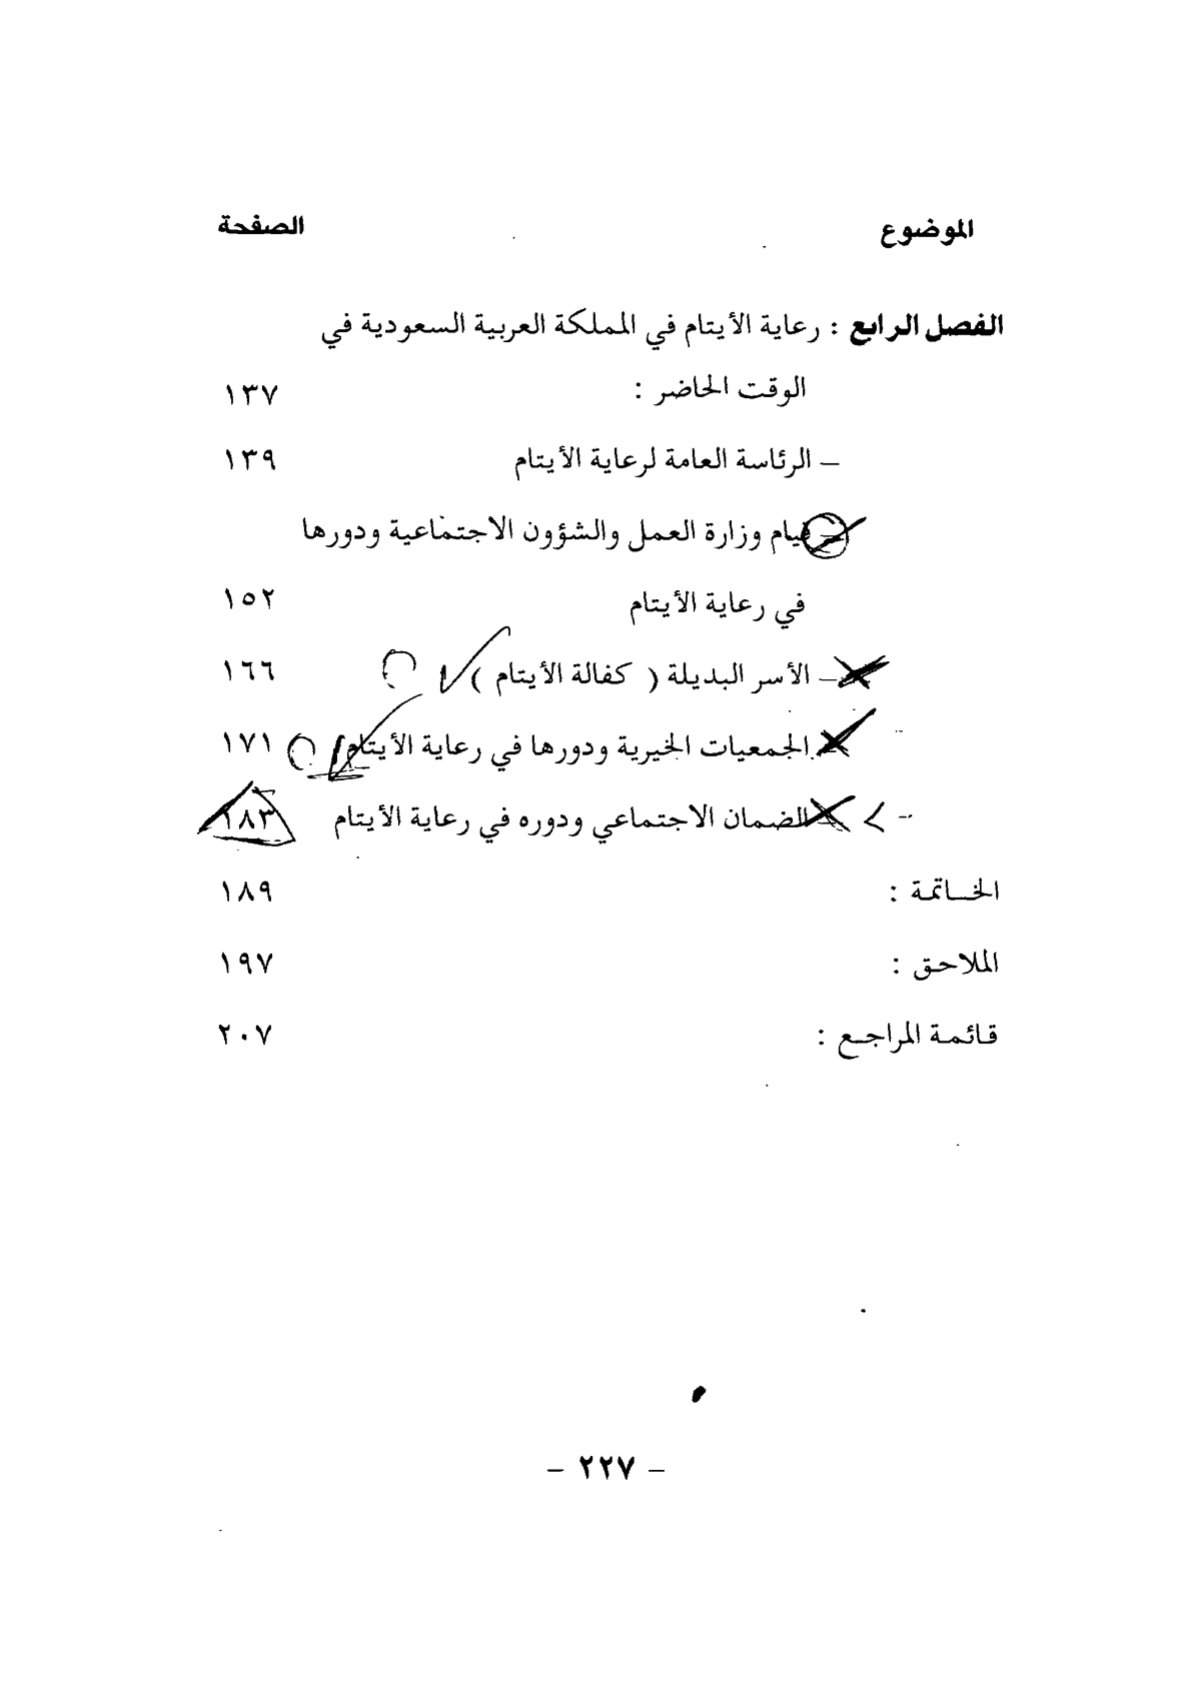 الموضوع الصفحة
الفصل الرابع : رعاية الأيتام في المملكة العربية السعودية في
الوقت الحاضر : ١٣٧
– الرئاسة العامة لرعاية الأيتام ١٣٩
– قيام وزارة العمل والشؤون الاجتماعية ودورها
في رعاية الأيتام ١٥٢
– الأسر البديلة ( كفالة الأيتام ) ١٦٦
– الجمعيات الخيرية ودورها في رعاية الأيتام ١٧١
– الضمان الاجتماعي ودوره في رعاية الأيتام ١٨٣
الخـاتمة : ١٨٩
الملاحق : ١٩٧
قائمة المراجع : ٢٠٧
– ٢٢٧ –